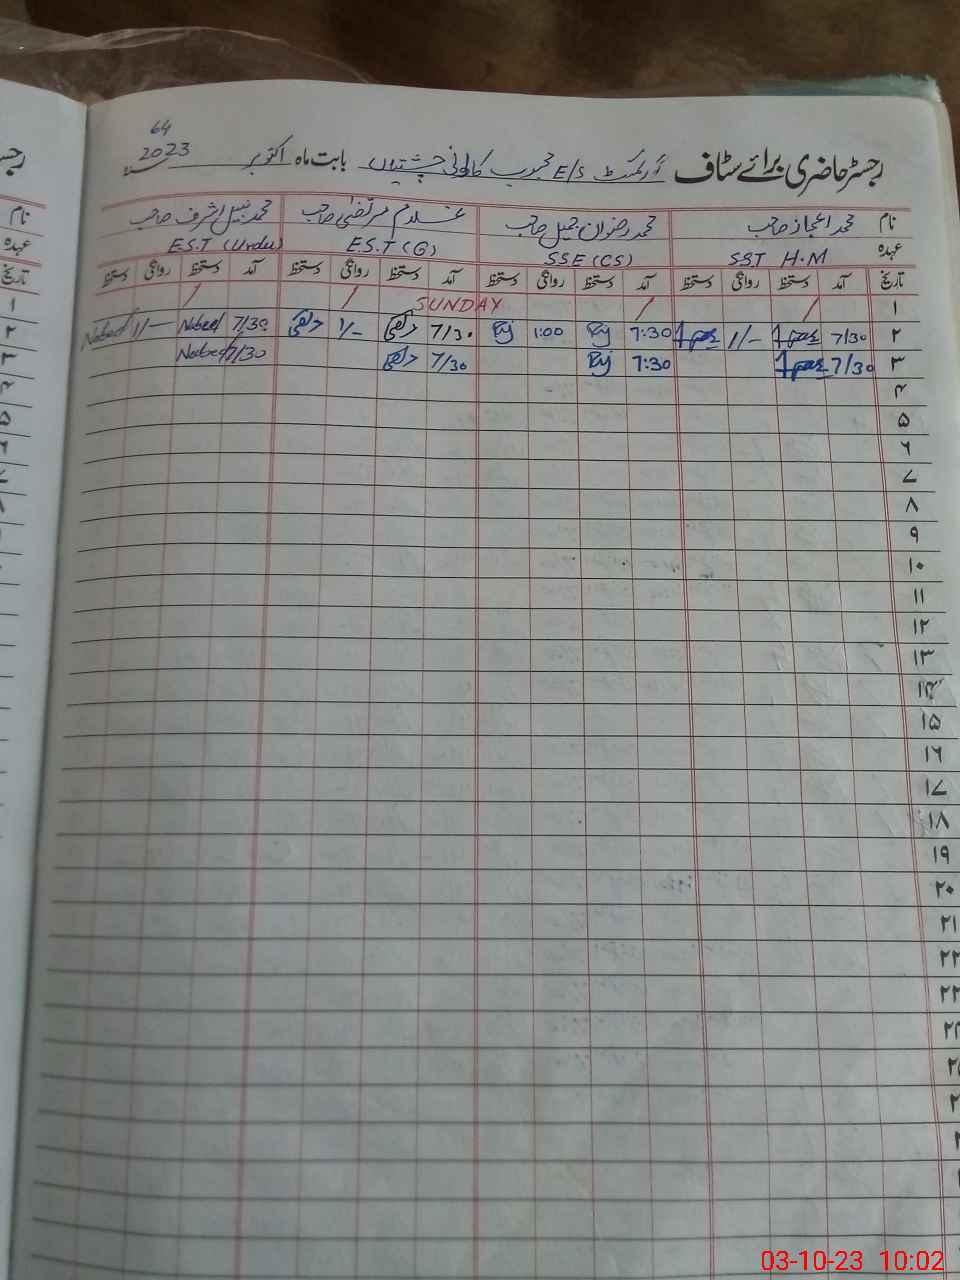 64
رجسٹر حاضری برائے سٹاف گورنمنٹ E/S محبوب کالونی چشتیاں بابت ماہ اکتوبر 2023
نام محمد اعجاز صاحب محمد رضوان جمیل صاحب غلام مرتضیٰ صاحب محمد نبیل اشرف صاحب
عہدہ SST H.M SSE (CS) E.S.T (G) E.S.T (Urdu)
تاریخ آمد دستخط روانگی دستخط آمد دستخط روانگی دستخط آمد دستخط روانگی دستخط آمد دستخط روانگی دستخط
۱ / / SUNDAY / /
۲ 7/30 1/- 7:30 1:00 7/30 1/- 7/30 Nabeel 1/- Nabeel
۳ 7/30 7:30 7/30 7/30 Nabeel
۴
۵
۶
۷
۸
۹
۱۰
۱۱
۱۲
۱۳
۱۴
۱۵
۱۶
۱۷
۱۸
۱۹
۲۰
۲۱
۲۲
۲۳
03-10-23 10:02